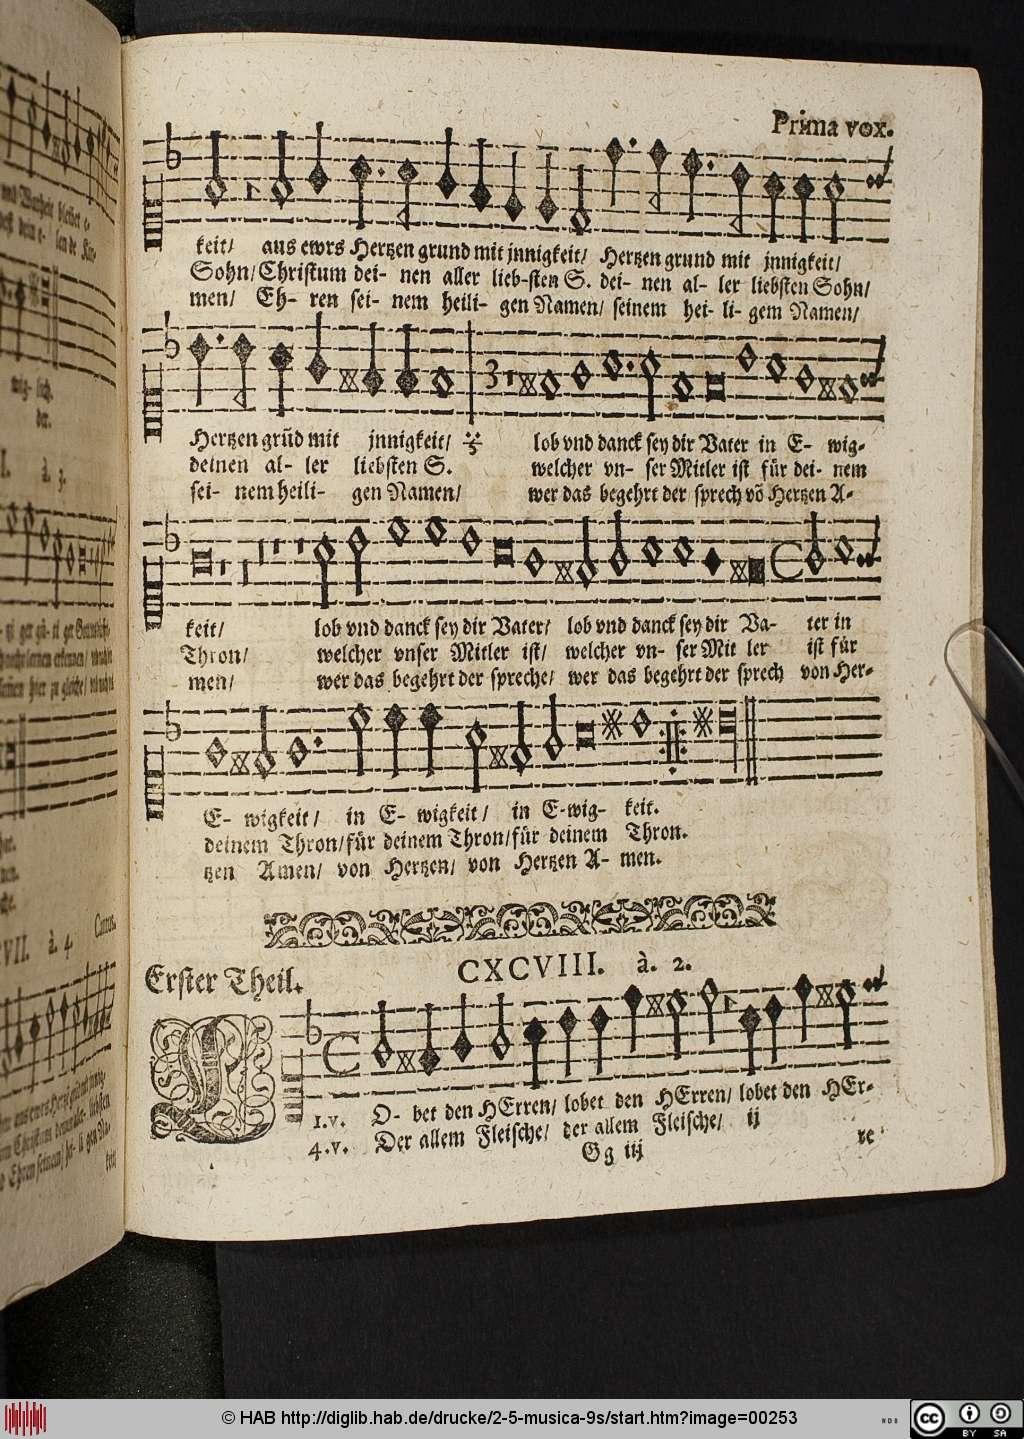 Prima vox.
keit/ aus ewrs Hertzen grund mit jnnigkeit/ Hertzen grund mit jnnigkeit/
Sohn/ Christum dei- nen aller lieb-sten S. dei- nen al- ler liebsten Sohn/
men/ Eh- ren sei- nem heili- gen Namen/ seinem hei- li- gem Namen/
Hertzen grũd mit jnnigkeit/
lob vnd danck sey dir Vater in E- wig-
deinen al- ler liebsten S.
welcher vn- ser Mitler ist für dei- nem
sei- nem heili- gen Namen/
wer das begehrt der sprech võ Hertzen A-
3
keit/ lob vnd danck sey dir Vater/ lob vnd danck sey dir Va- ter in
Thron/ welcher vnser Mitler ist/ welcher vn- ser Mit ler ist für
men/ wer das begehrt der spreche/ wer das begehrt der sprech von Her-
E- wigkeit/ in E- wigkeit/ in E-wig- keit.
deinem Thron/ für deinem Thron/ für deinem Thron.
tzen Amen/ von Hertzen/ von Hertzen A- men.
Erster Theil.
CXCVIII. à. 2.
L
1.v. O- bet den HErren/ lobet den HErren/ lobet den HEr-
4.v. Der allem Fleische/ der allem Fleische/ ij
Gg iij
re
VII. à. 4
Cantus.
I. à 3.
© HAB http://diglib.hab.de/drucke/2-5-musica-9s/start.htm?image=00253
cc BY SA